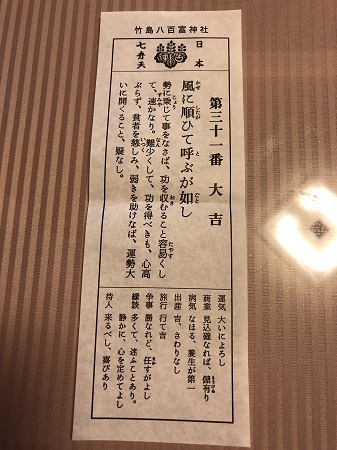 竹島八百富神社
日本
七弁天
第三十一番 大吉
風に順ひて呼ぶが如し
かぜ したが よ ごと
勢に乗じて事をなさば、功を収むること容易くし
て、速かなり。難少くして、功を得べきも、心高
ぶらず、貧者を慈しみ、弱きを助けなば、運勢大
いに開くること、疑なし。
運気 大いによろし
商業 見込確なれば、儲有り
病気 なほる、養生が第一
出産 吉、さわりなし
旅行 行て吉
争事 勝なれど、任すがよし
縁談 多くて、迷ふことあり。
静かに、心を定めてよし
待人 来るべし、喜びあり